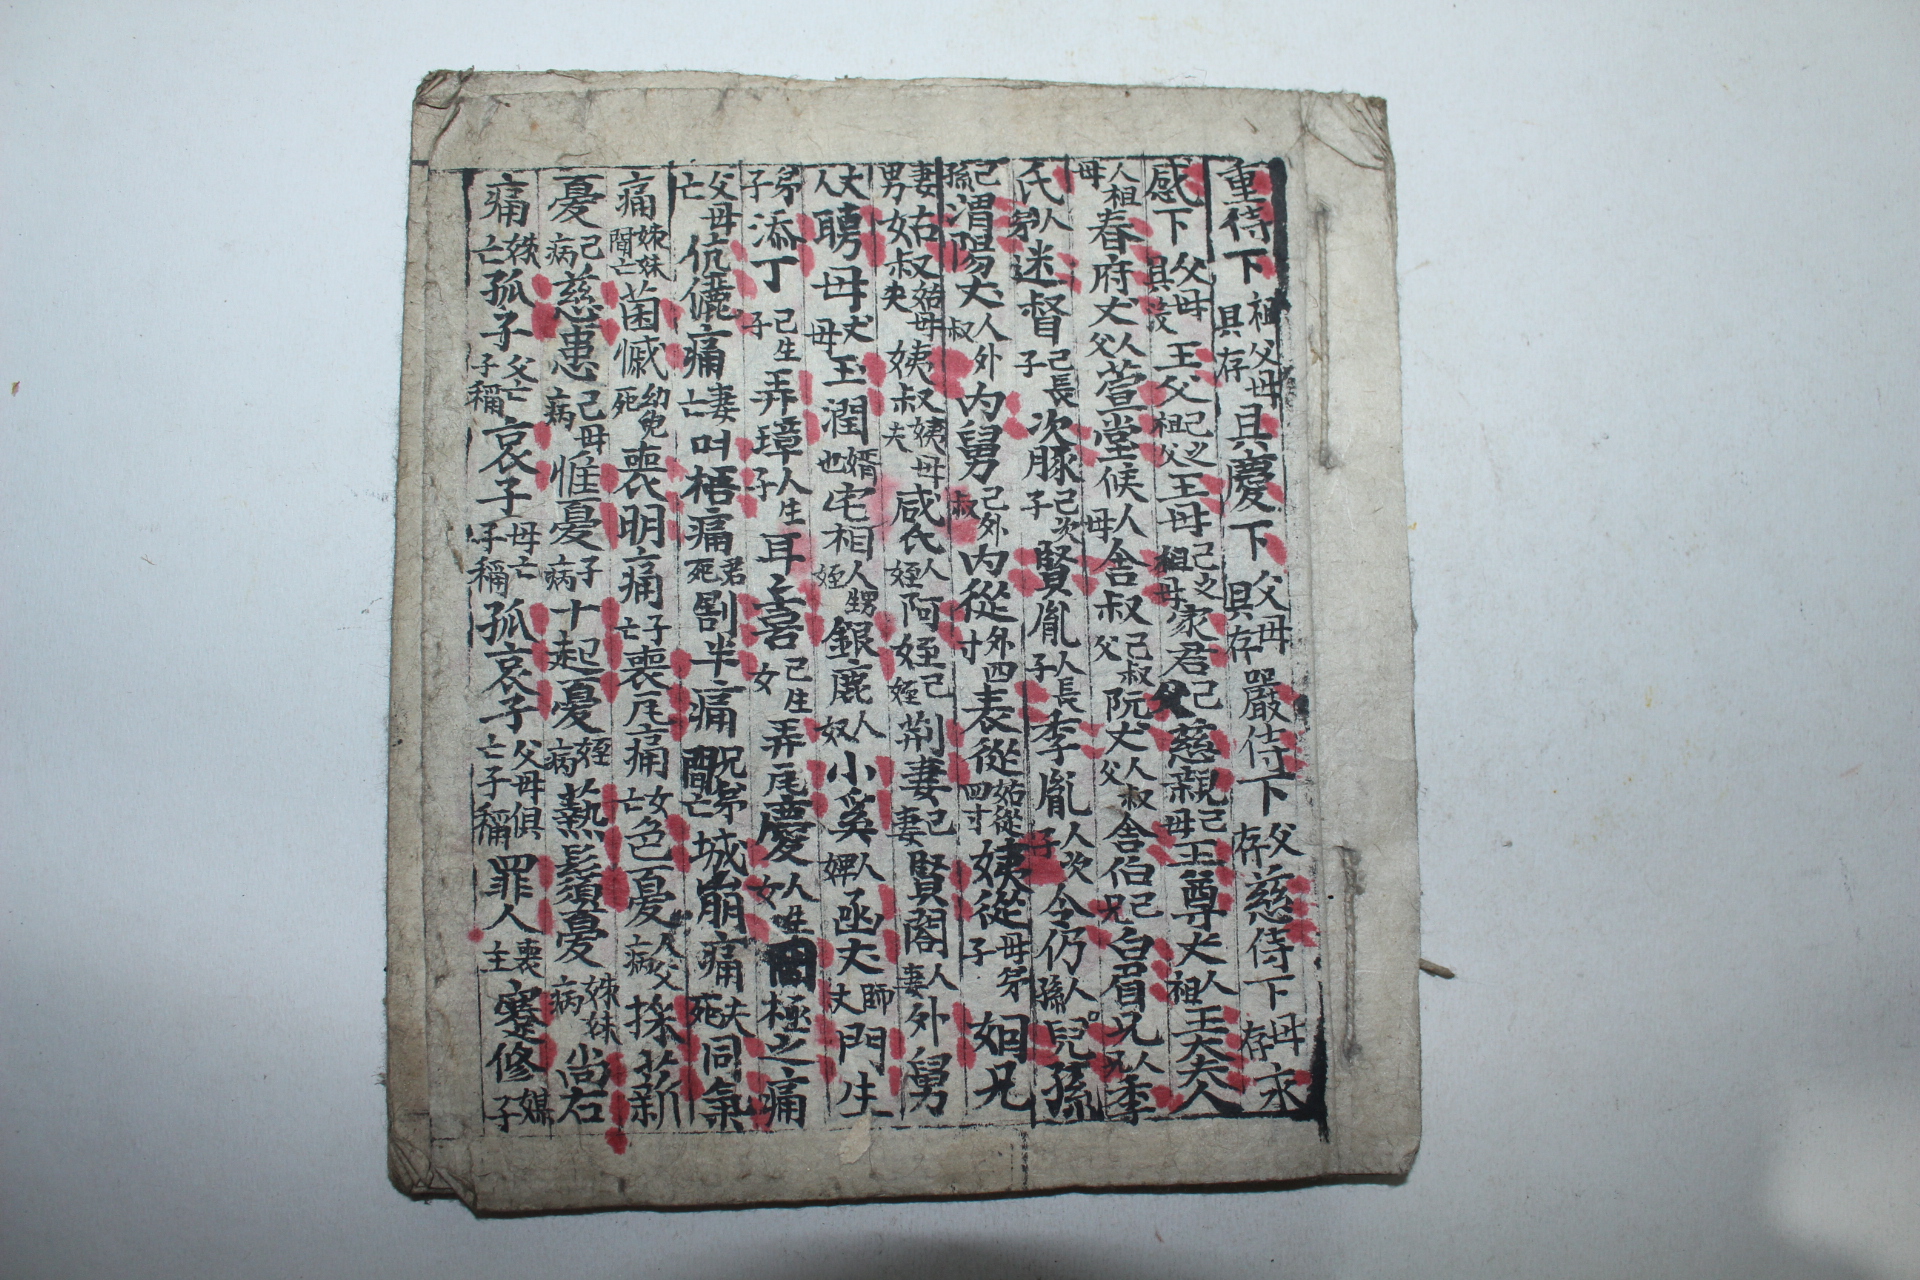 重侍下祖父母具存具慶下父母具存嚴侍下父存慈侍下母存永
感下父母具沒王父己之祖父王母己之祖母家君己父慈親己母王尊丈人祖王大夫人
人祖母春府丈人父萱堂候人母舍叔己叔父阮丈人叔父舍伯己兄白眉兄人兄季
氏人弟迷督己長子次豚己次子賢胤人長子季胤人次子令仍人孫兒孫
己孫渭陽丈人外叔內舅己外叔內從外四寸表從姑從四寸姨從母弟子姻兄
妻男姑叔姑母夫姨叔姨母夫咸氏人姪阿姪己姪荆妻己妻賢閤人妻外舅
丈人聘母丈母玉潤婿也宅相人甥姪銀鹿人奴小奚人婢函丈師丈門生
弟子添丁己生子弄璋人生子耳喜己生女弄瓦慶人生女罔極之痛
父母亡伉儷痛妻亡叫梧痛君死割半痛兄弟間亡城崩痛夫死同氣
痛姊妹間亡菌慽幼兒死喪明痛子亡喪瓦痛女亡色憂人父病採薪
憂己病慈患己母病惟憂子病十起憂姪病爇鬚憂姊妹病尚右
痛姊亡孤子父亡子稱哀子母亡子稱孤哀子父母俱亡子稱罪人喪主蹇修媒子